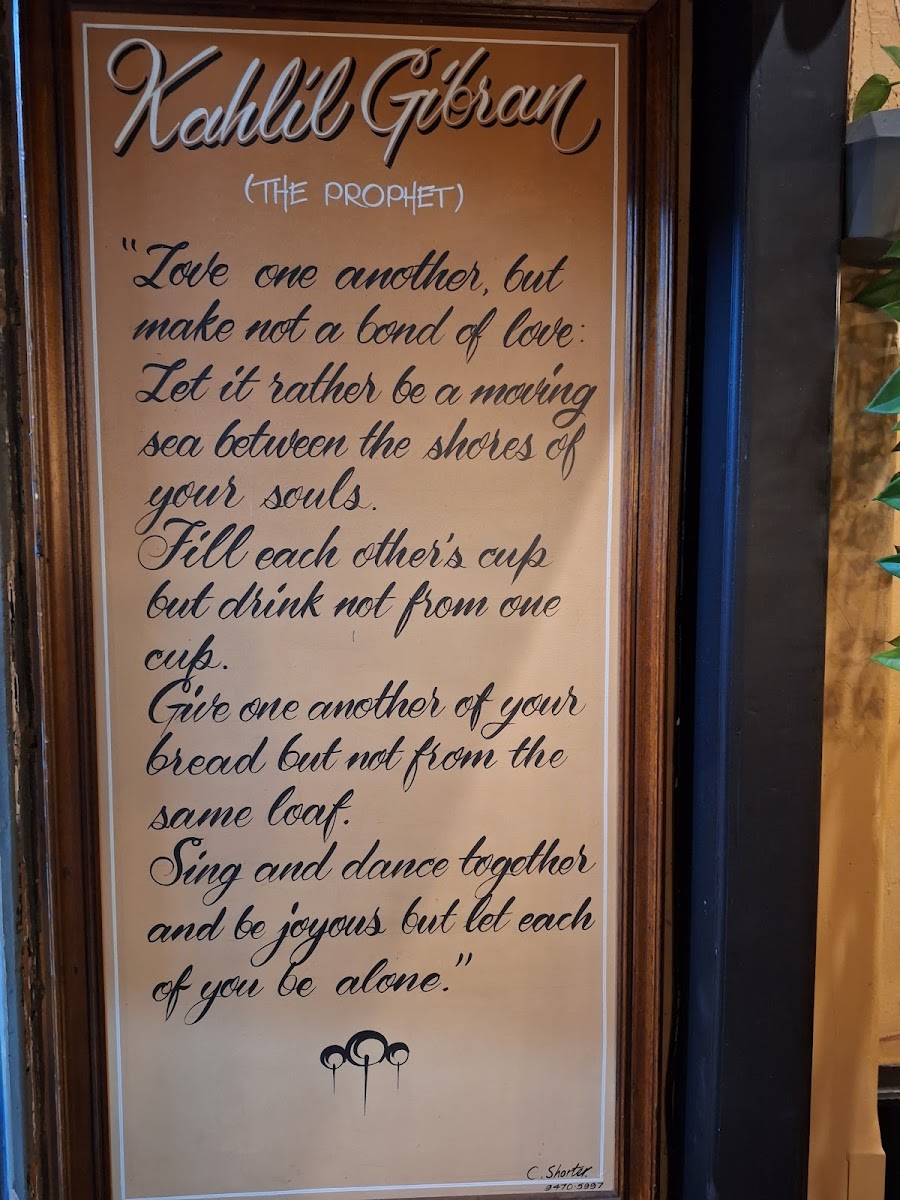 Kahlil Gibran
(THE PROPHET)
"Love one another, but
make not a bond of love:
Let it rather be a moving
sea between the shores of
your souls.
Fill each other's cup
but drink not from one
cup.
Give one another of your
bread but not from the
same loaf.
Sing and dance together
and be joyous but let each
of you be alone."
C. Shorter.
9470-5997